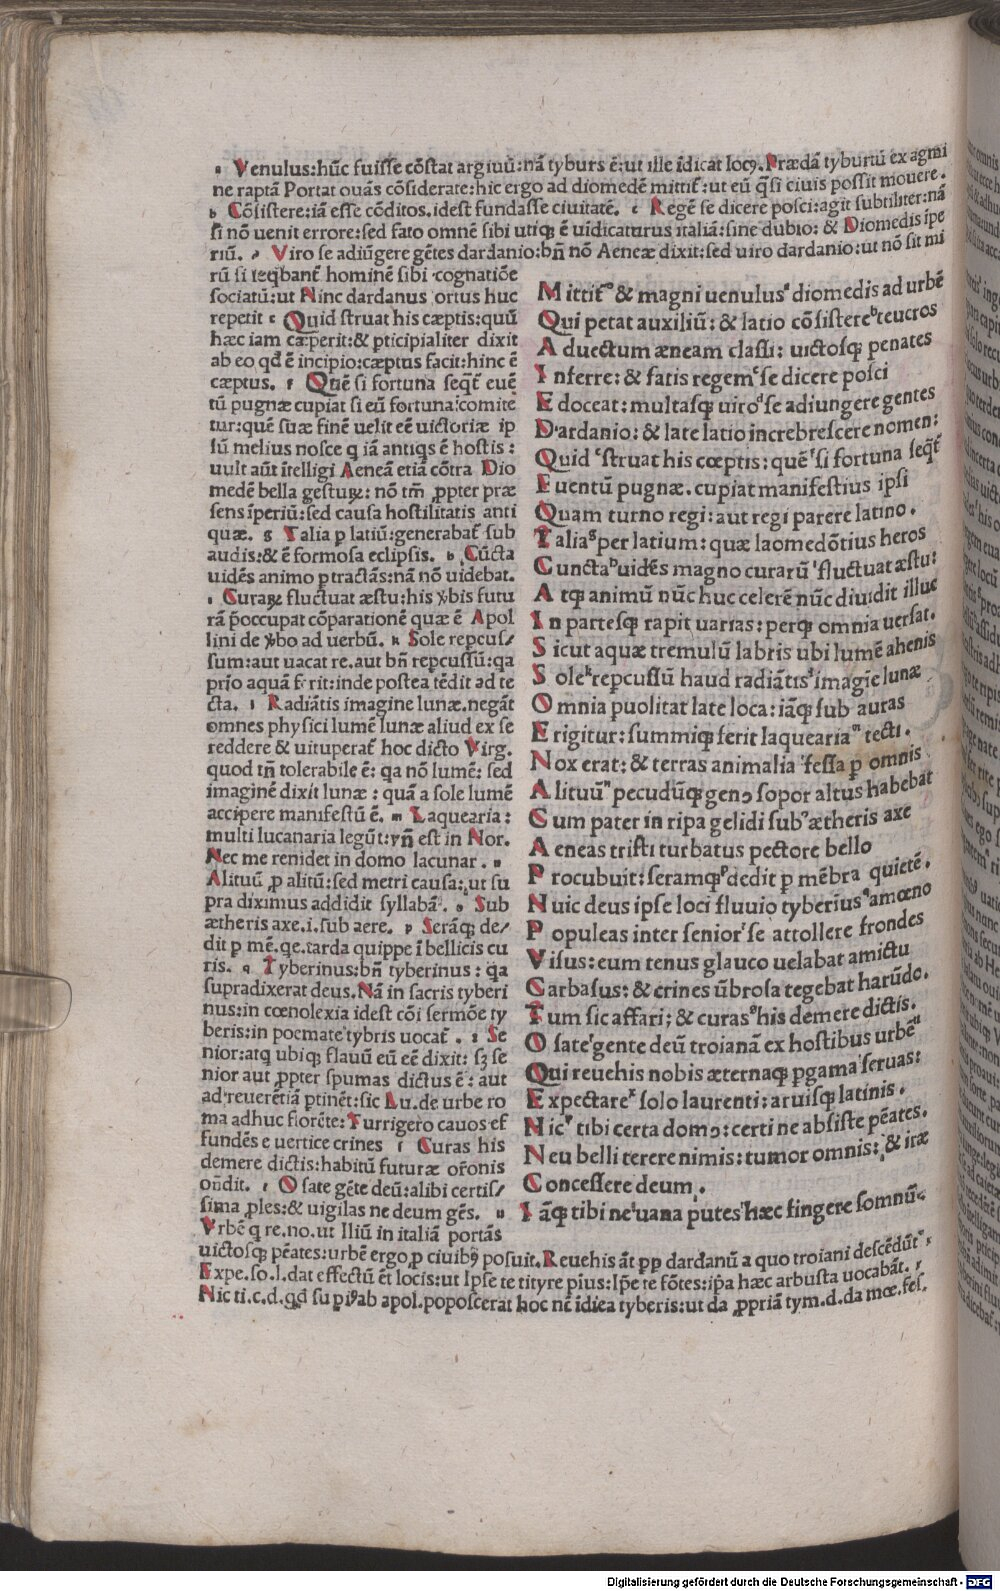 a Venulus:hũc fuisse cõstat argiuũ:nã tyburs ẽ:ut ille ĩdicat locꝯ.Prædã tyburtũ ex agmi
ne raptã Portat ouãs cõsiderate:hic ergo ad diomedẽ mittit̃:ut eũ q̃si ciuis possit mouere.
b Cõsistere:iã esse cõditos.idest fundasse ciuitatẽ. c Regẽ se dicere posci:agit subtiliter:nã
si nõ uenit errore:sed fato omnẽ sibi utiq; ẽ uidicaturus italiã:sine dubio: & Diomedis ĩpe
riũ. d Viro se adiũgere gẽtes dardanio:bñ nõ Aeneæ dixit:sed uiro dardanio:ut nõ sit mi
rũ si seq̃bant̃ hominẽ sibi cognatiõe
sociatũ:ut Hinc dardanus ortus huc
repetit e Quid struat his cæptis:quũ
hæc iam cæperit:& pticipialiter dixit
ab eo qd̃ ẽ incipio:cæptus facit:hinc ẽ
cæptus. f Quẽ si fortuna seq̃t̃ euẽ
tũ pugnæ cupiat si eũ fortuna:comite
tur:quẽ suæ finẽ uelit eẽ uictoriæ ip
sũ melius nosce q iã antiq̃s ẽ hostis:
uult aũt ĩtelligi Aeneã etiã cõtra Dio
medẽ bella gesturꝝ: nõ tm̃ ꝓpter præ
sens ĩperiũ:sed causa hostilitatis anti
quæ. g Talia p latiũ:generabat̃ sub
audis:& ẽ formosa eclipsis. h Cũcta
uidẽs animo ptractãs:nã nõ uidebat.
i Curaꝝ fluctuat æstu:his v̾bis futu
rã p̃occupat cõparationẽ quæ ẽ Apol
lini de v̾bo ad uerbũ. k Sole repcus/
sum:aut uacat re.aut bñ repcussũ:qa
prĩo aquã ferit:inde postea tẽdit ad te
cta. l Radiãtis imagine lunæ.negãt
omnes physici lumẽ lunæ aliud ex se
reddere & uituperat̃ hoc dicto Virg.
quod tñ tolerabile ẽ: qa nõ lumẽ: sed
imaginẽ dixit lunæ : quã a sole lumẽ
accipere manifestũ ẽ. m Laquearia:
multi lucanaria legũt:vñ est in Hor.
Nec me renidet in domo lacunar. n
Alituũ ꝓ alitũ:sed metri causa:ut su
pra diximus addidit syllabã. o Sub
ætheris axe.i.sub aere. p Serãq; de/
dit p mẽ.qe.tarda quippe ĩ bellicis cu
ris. q Tyberinus:bñ tyberinus : qa
supradixerat deus.Nã in sacris tyberi
nus:in cœnolexia idest cõi sermõe ty
beris:in poemate tybris uocat̃ . r Se
nior:atq ubiq; flauũ eũ eẽ dixit: sꝫ se
nior aut ꝓpter spumas dictus ẽ: aut
ad reuerẽtiã ptinẽt:sic Lu.de urbe ro
ma adhuc florẽte:Turrigero cauos ef
fundẽs e uertice crines s Curas his
demere dictis:habitũ futuræ or̃onis
oñdit. t O sate gẽte deũ:alibi certis/
sima ꝓles:& uigilas ne deum gẽs. u
Vrbẽ q re.no.ut Iliũ in italiã portãs
uictosq; pẽates:urbẽ ergo ꝓ ciuibꝯ posuit.Reuehis ãt pp dardanũ a quo troiani descẽdũt x
Expe.so.l.dat effectũ ẽt locis:ut Ipse te tityre pĩus:Ip̃e te fõtes:ip̃a hæc arbusta uocabãt. y
Hic ti.c.d.qd̃ su pꝯab apol.poposcerat hoc nẽ ĩdiea tyberis:ut da ꝓpriã tym.d.da mœ.fes.
Mittit̃ a & magni uenulus diomedis ad urbẽ
Qui petat auxiliũ: & latio cõsistere b teucros
Aduectum æneam classi: uictosq; penates
Inferre: & fatis regem c se dicere posci
Edoceat: multasq; uiro d se adiungere gentes
Dardanio: & late latio increbrescere nomen:
Quid e struat his cœptis: quẽ f si fortuna seq̃t̃
Euentũ pugnæ. cupiat manifestius ipsi
Quam turno regi: aut regi parere latino.
Talia g per latium: quæ laomedõtius heros
Cuncta h uidẽs magno curarũ i fluctuat æstu:
Atq; animũ nũc huc celerẽ nũc diuidit illuc
In partesq; rapit uarias: perq; omnia uersat.
Sicut aquæ tremulũ labris ubi lumẽ ahenis
Sole k repcussũ haud radiãtis l imagĩe lunæ
Omnia puolitat late loca: iãq; sub auras
Erigitur: summiq; ferit laquearia m tecti.
Nox erat: & terras animalia fessa p omnis
Alituũ n pecudũq; genꝯ sopor altus habebat
Cum pater in ripa gelidi sub o ætheris axe
Aeneas tristi turbatus pectore bello
Procubuit: seramq; p dedit p mẽbra quietẽ.
Huic deus ipse loci fluuio tyberĩus q amœno
Populeas inter senior r se attollere frondes
Visus: eum tenus glauco uelabat amictu
Carbasus: & crines ũbrosa tegebat harũdo.
Tum sic affari; & curas s his demere dictis.
O sate t gente deũ troianã ex hostibus urbẽ u
Qui reuehis nobis æternaq; pgama seruas:
Expectare x solo laurenti: aruisq; latinis.
Hic y tibi certa domꝯ: certi ne absiste pẽates.
Neu belli terere nimis: tumor omnis: & iræ
Concessere deum.
Iãq; tibi ne uana putes hæc fingere somnũ
Digitalisierung gefördert durch die Deutsche Forschungsgemeinschaft - DFG